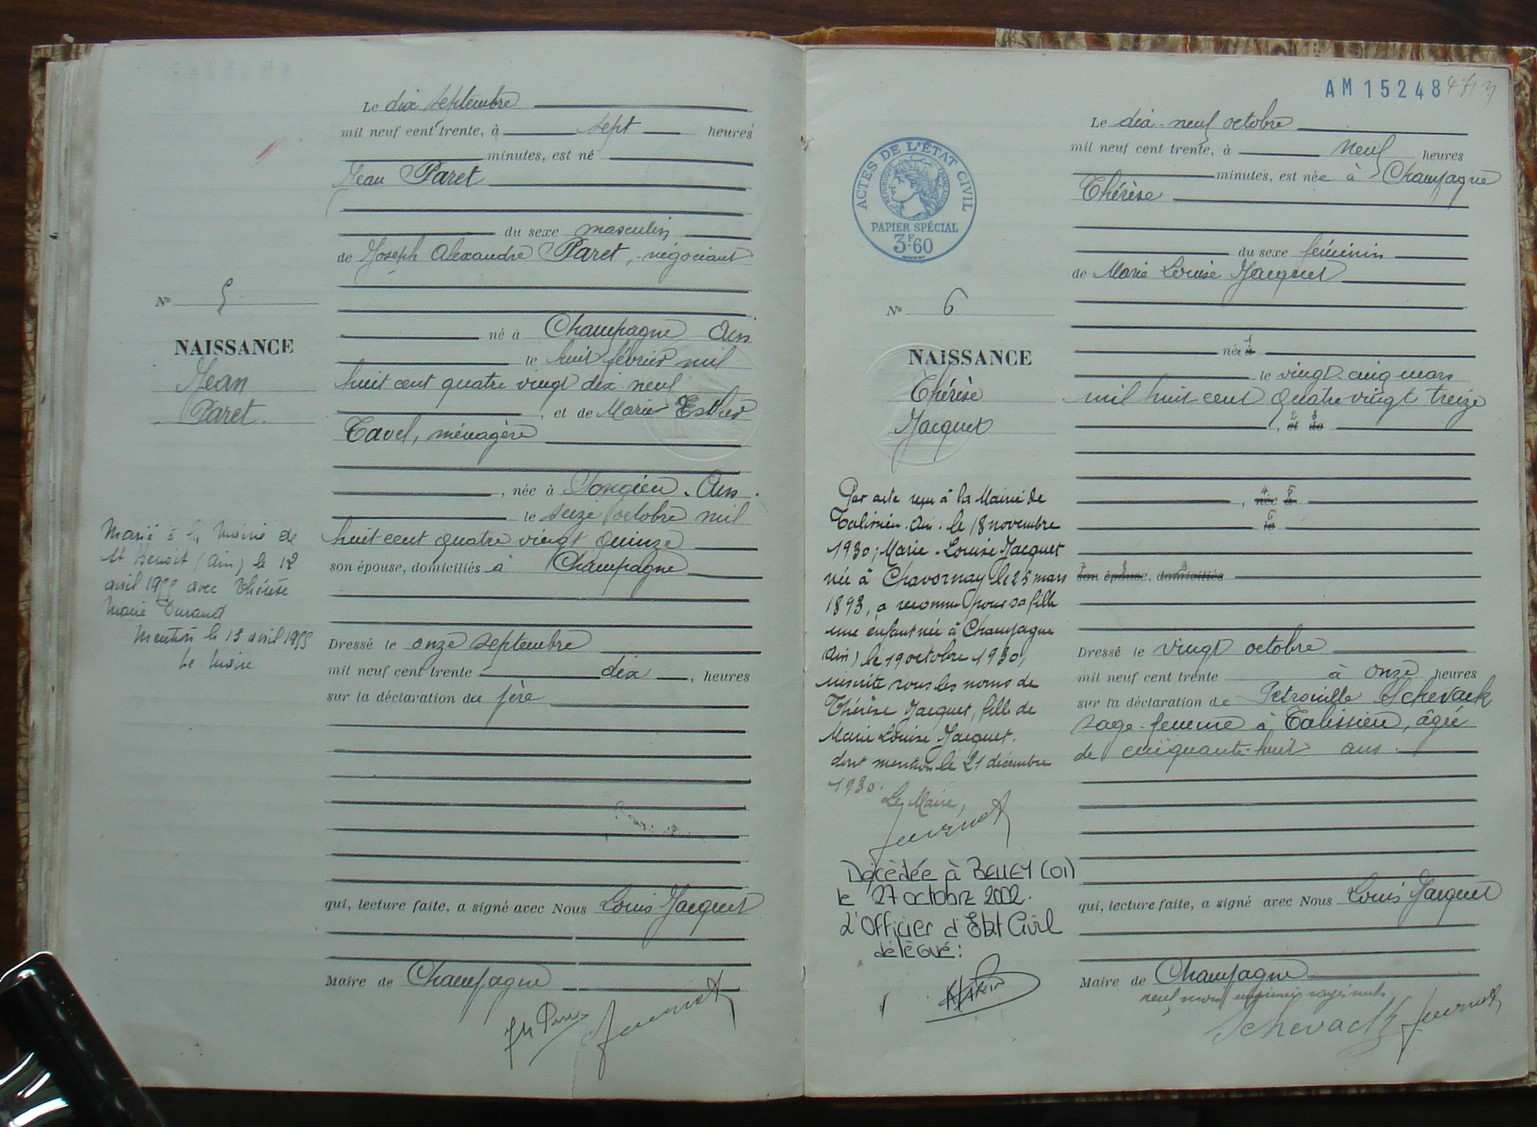 Le dix septembre
mil neuf cent trente, à sept heures
minutes, est né
Jean Paret
du sexe masculin
de Joseph Alexandre Paret, négociant
né à Champagne Ain
le huit février mil
huit cent quatre vingt dix neuf
, et de Marie Esther
Tavel, ménagère
, née à Songieu. Ain.
le seize octobre mil
huit cent quatre vingt quinze
son épouse, domiciliés à Champagne
Dressé le onze septembre
mil neuf cent trente dix, heures
sur la déclaration du père
qui, lecture faite, a signé avec Nous Louis Jacquet
Maire de Champagne
N° 5
NAISSANCE
Jean
Paret.
Marié à la Mairie de
St Benoit (Ain) le 12
avril 19 avec Thérèse
Marie
Mention le 13 avril 19
Le Maire
AM 15248
ACTES DE L'ÉTAT CIVIL
PAPIER SPÉCIAL
3F60
Le dix-neuf octobre
mil neuf cent trente, à neuf heures
minutes, est née à Champagne
Thérèse
du sexe féminin
de Marie Louise Jacquet
née à
le vingt-cinq mars
mil huit cent quatre vingt treize
, et de
, née à
le
son épouse, domiciliés
Dressé le vingt octobre
mil neuf cent trente à onze heures
sur la déclaration de Pétronille Schevack
sage-femme à Talissieu, âgée
de cinquante-huit ans.
qui, lecture faite, a signé avec Nous Louis Jacquet
Maire de Champagne
neuf mots imprimés rayés nuls
Schevack
N° 6
NAISSANCE
Thérèse
Jacquet
Par acte reçu à la Mairie de
Talissieu. Ain. le 18 novembre
1930, Marie-Louise Jacquet
née à Chavornay le 25 mars
1893, a reconnu pour sa fille
une enfant née à Champagne
Ain) le 19 octobre 1930,
inscrite sous les noms de
Thérèse Jacquet, fille de
Marie Louise Jacquet.
dont mention le 21 décembre
1930.
Le Maire,
Décédée à BELLEY (01)
le 27 octobre 2002.
L'Officier d'Etat Civil
délégué: